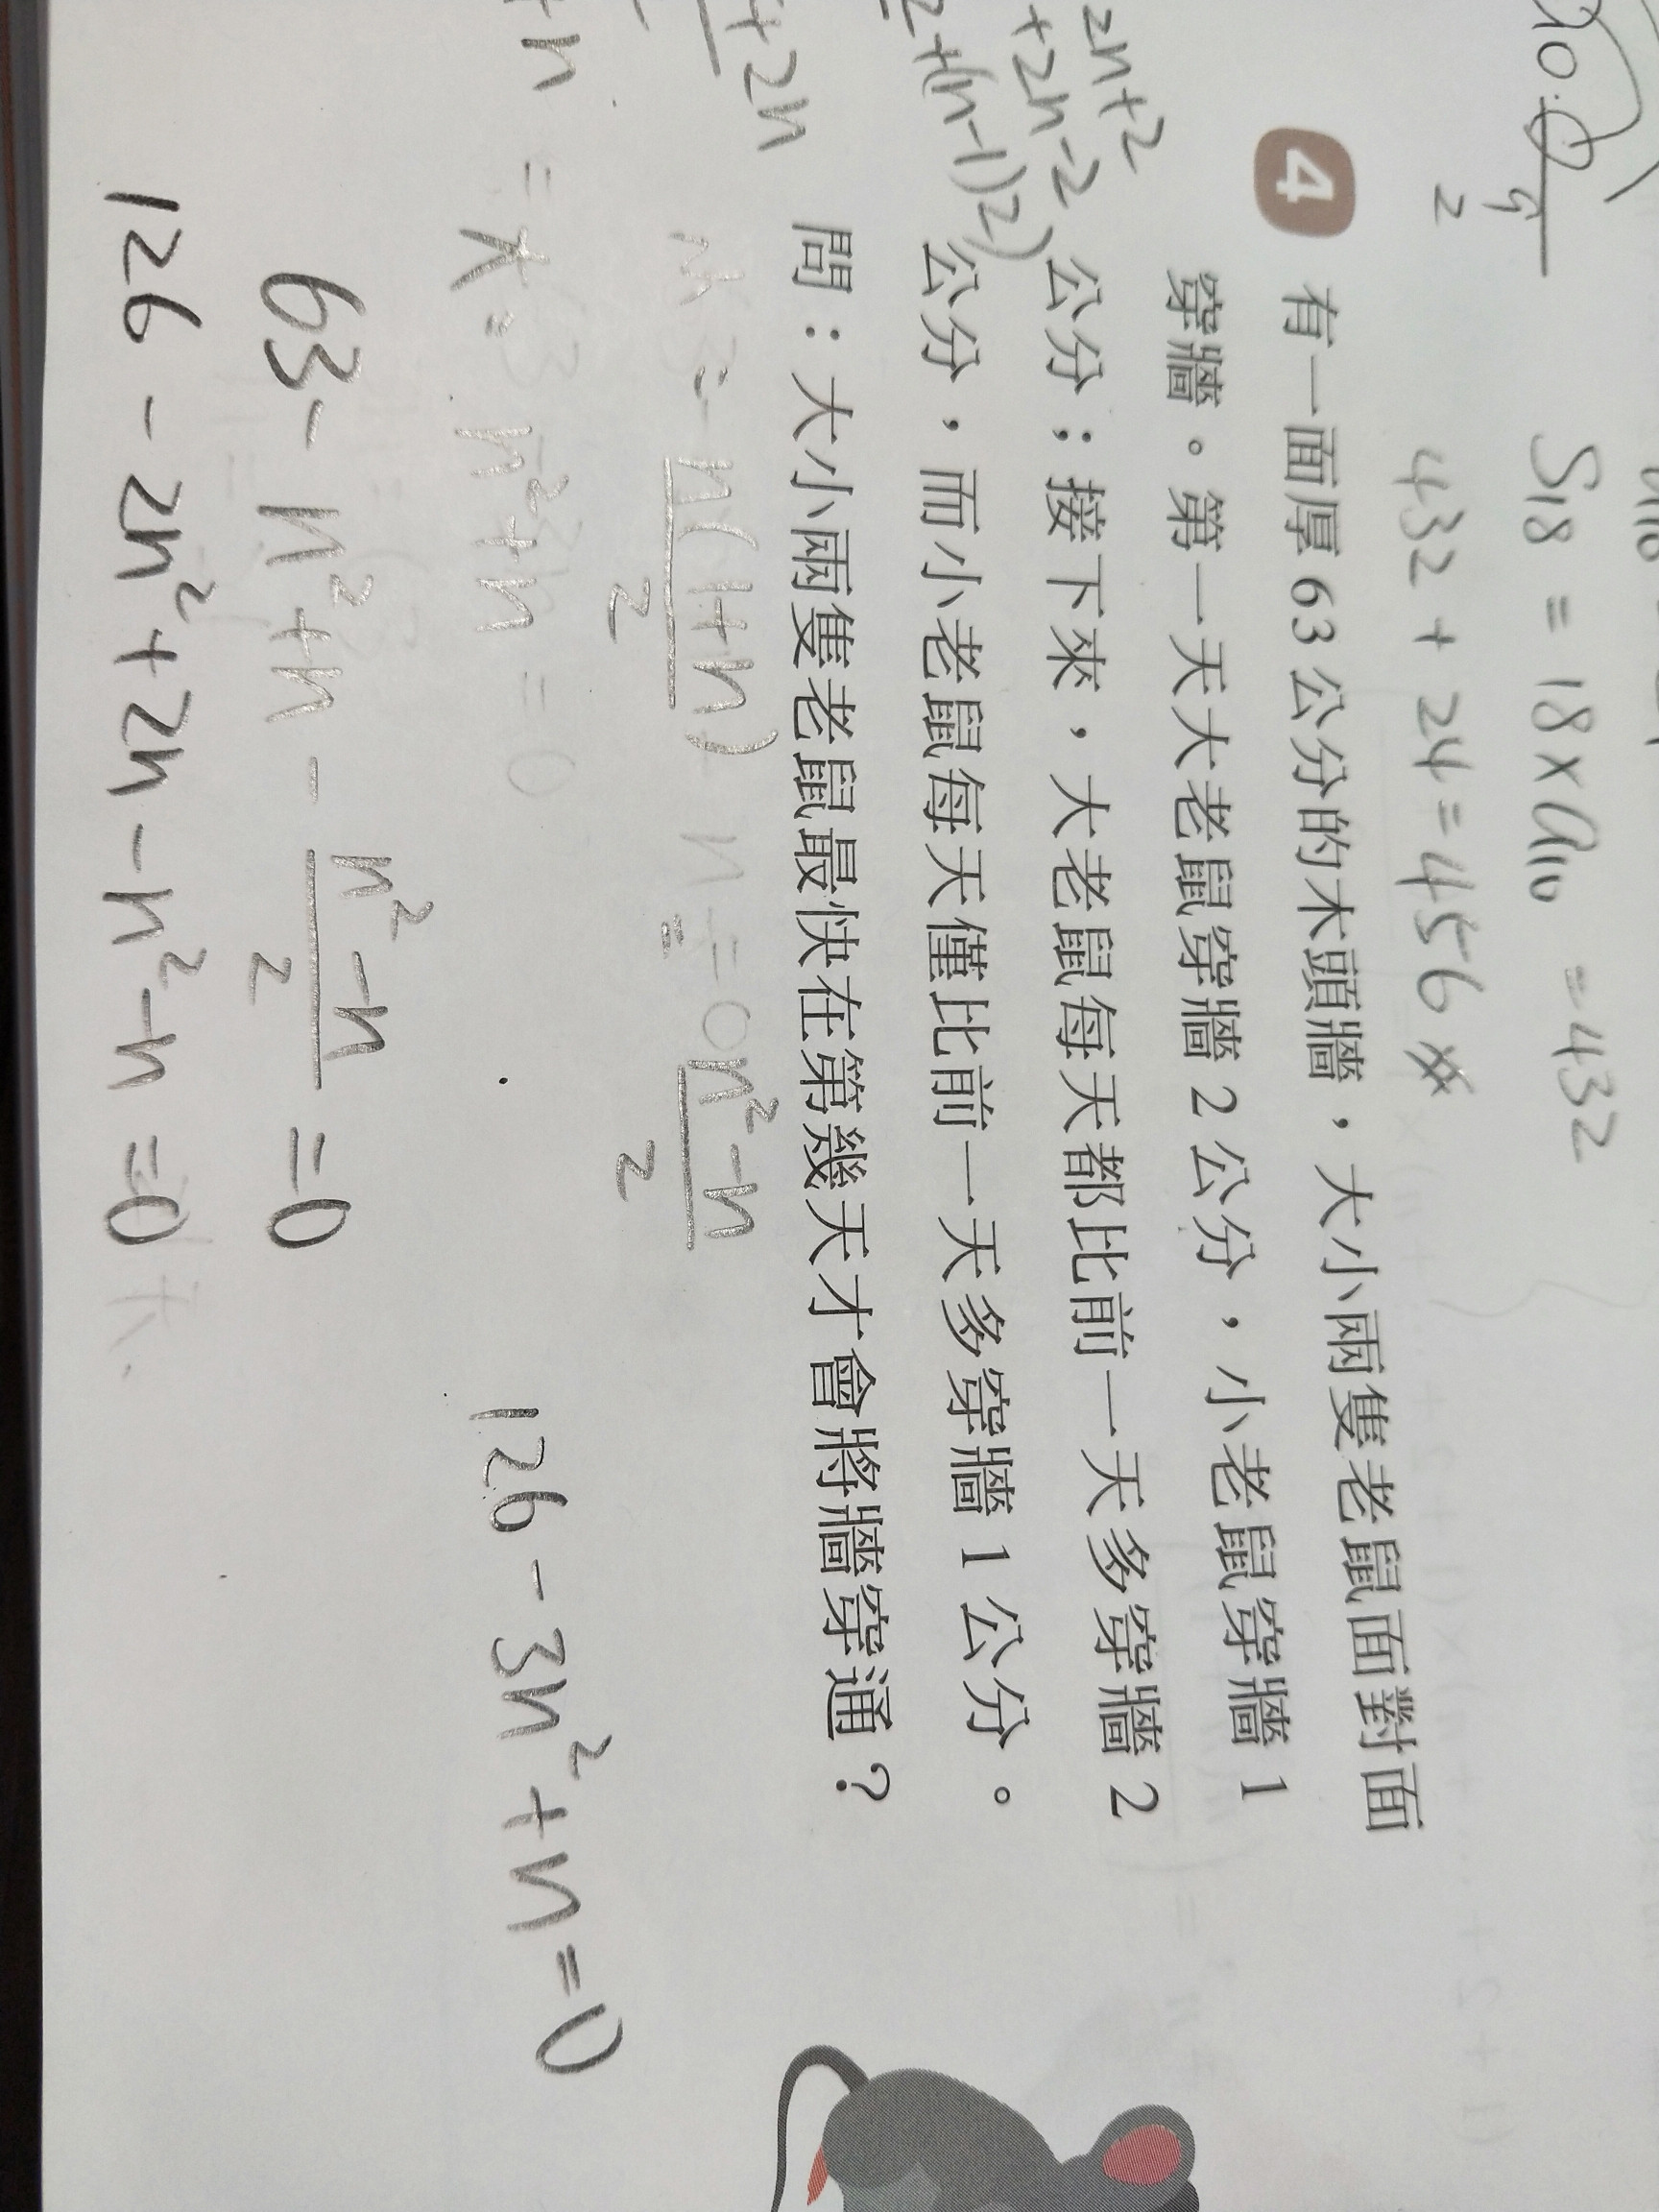 S₁₈ = 18 × a₁₀ = 432
432 + 24 = 456
2n+2
+2n-2
2+(n-1)2)
+2n
+n
4 有一面厚 63 公分的木頭牆，大小兩隻老鼠面對面
穿牆。第一天大老鼠穿牆 2 公分，小老鼠穿牆 1
公分；接下來，大老鼠每天都比前一天多穿牆 2
公分，而小老鼠每天僅比前一天多穿牆 1 公分。
問：大小兩隻老鼠最快在第幾天才會將牆穿通？
n(1+n)/2
n²-n/2
n²+n = 0
63 - n²+n - n²-n/2 = 0
126 - 2n²+2n - n²-n = 0
126 - 3n²+n = 0